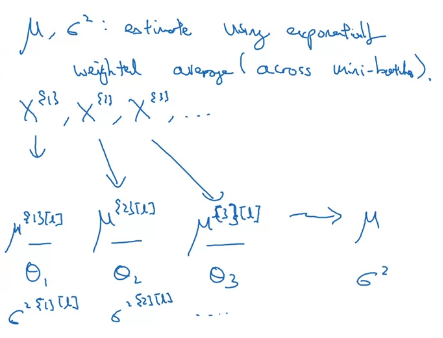 μ, σ²: estimate using exponentially
weighted average (across mini-batches).
X^{1}, X^{2}, X^{3}, ...
↓ ↘ ↘
μ^{1}[l] μ^{2}[l] μ^{3}[l] → μ
θ₁ θ₂ θ₃ σ²
σ²^{1}[l] σ²^{2}[l] ....